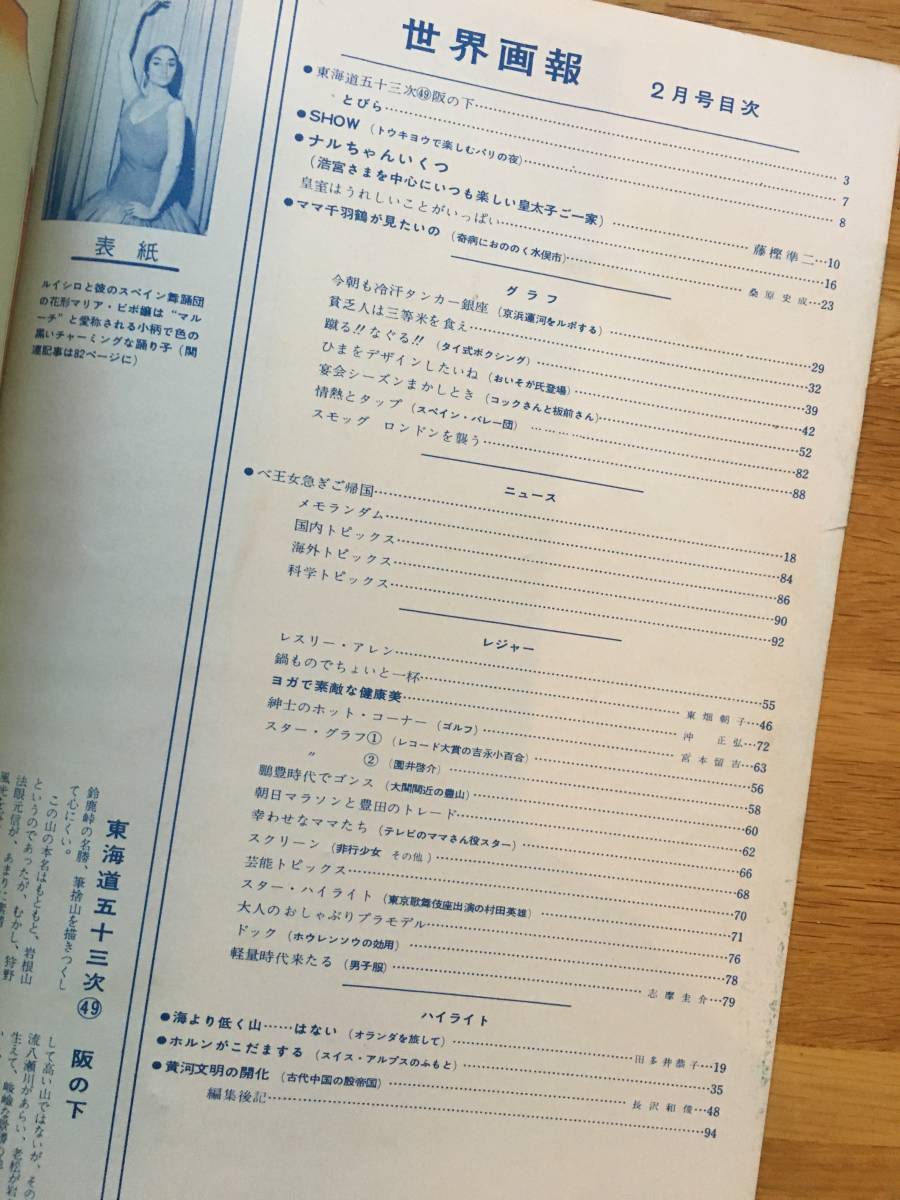 世界画報
2月号目次
●東海道五十三次㊾阪の下……3
とびら……7
●SHOW（トウキョウで楽しむパリの夜）……8
●ナルちゃんいくつ
（浩宮さまを中心にいつも楽しい皇太子ご一家）……藤樫準二…10
皇室はうれしいことがいっぱい……16
●ママ千羽鶴が見たいの（奇病におののく水俣市）……桑原史成…23
グラフ
今朝も冷汗タンカー銀座（京浜運河をルポする）……29
貧乏人は三等米を食え……32
蹴る!!なぐる!!（タイ式ボクシング）……39
ひまをデザインしたいね（おいそが氏登場）……42
宴会シーズンまかしとき（コックさんと板前さん）……52
情熱とタップ（スペイン・バレー団）……82
スモッグ ロンドンを襲う……88
ニュース
●ベ王女急ぎご帰国……18
メモランダム……84
国内トピックス……86
海外トピックス……90
科学トピックス……92
レジャー
レスリー・アレン……55
鍋ものでちょいと一杯……東畑朝子…46
ヨガで素敵な健康美……沖 正弘…72
紳士のホット・コーナー（ゴルフ）……宮本留吉…63
スター・グラフ①（レコード大賞の吉永小百合）……56
〃 ②（園井啓介）……58
鵬豊時代でゴンス（大関間近の豊山）……60
朝日マラソンと豊田のトレード……62
幸わせなママたち（テレビのママさん役スター）……66
スクリーン（非行少女 その他）……68
芸能トピックス……70
スター・ハイライト（東京歌舞伎座出演の村田英雄）……71
大人のおしゃぶりプラモデル……76
ドック（ホウレンソウの効用）……78
軽量時代来たる（男子服）……志摩圭介…79
ハイライト
●海より低く山……はない（オランダを旅して）……田多井恭子…19
●ホルンがこだまする（スイス・アルプスのふもと）……35
●黄河文明の開化（古代中国の殷帝国）……長沢和俊…48
編集後記……94
表紙
ルイシロと彼のスペイン舞踊団
の花形マリア・ピポ嬢は“マル
ーチ”と愛称される小柄で色の
黒いチャーミングな踊り子（関
連記事は82ページに）
東海道五十三次㊾ 阪の下
鈴鹿峠の名勝、筆捨山を描きつくし
て心にくい。
この山の本名はもともと、岩根山
というのであったが、むかし、狩野
法眼元信が、あまり
して高い山ではないが、その
流八瀬川があらい、老松が岩
生えて、